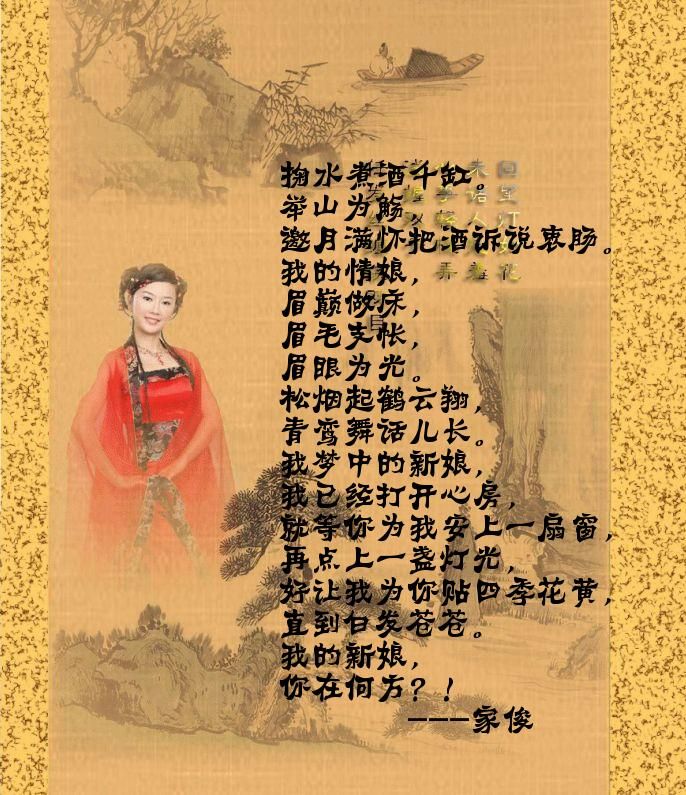 掬水煮酒千缸。
举山为觞，
邀月满怀把酒诉说衷肠。
我的情娘，
眉巅做床，
眉毛支帐，
眉眼为光。
松烟起鹤云翔，
青鸾舞话儿长。
我梦中的新娘，
我已经打开心房，
就等你为我安上一扇窗，
再点上一盏灯光，
好让我为你贴四季花黄，
直到白发苍苍。
我的新娘，
你在何方？！
———家俊